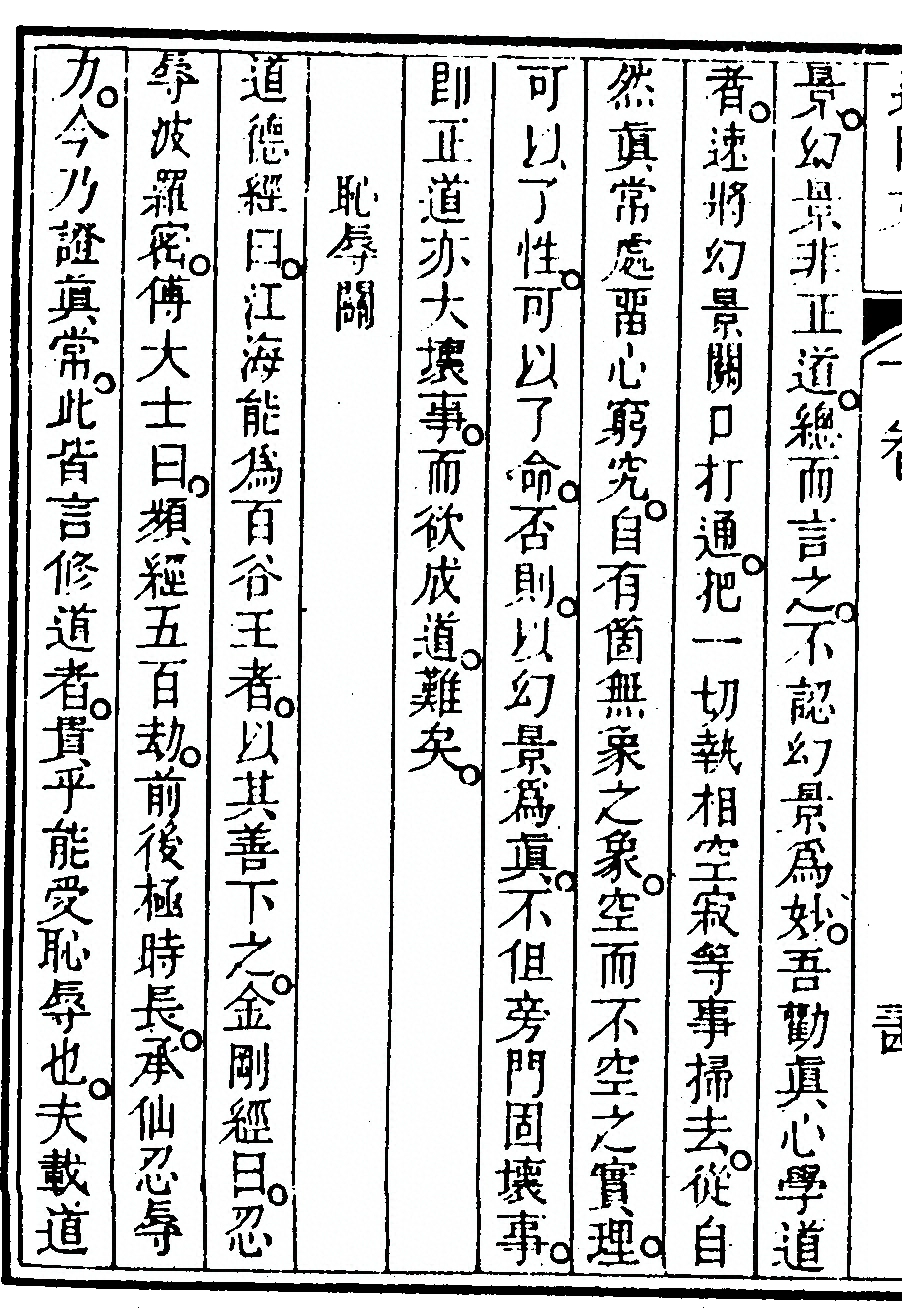 景幻景非正道總而言之不認幻景爲妙吾勸眞心學道
者速將幻景關口打通把一切執相空寂等事掃去從自
然眞常處畱心窮究自有箇無象之象空而不空之實理
可以了性可以了命否則以幻景爲眞不但旁門固壞事
即正道亦大壞事而欲成道難矣
恥辱關
道德經曰江海能爲百谷王者以其善下之金剛經曰忍
辱波羅密傅大士曰頻經五百劫前後極時長承仙忍辱
力今乃證眞常此皆言修道者貴乎能受恥辱也夫載道